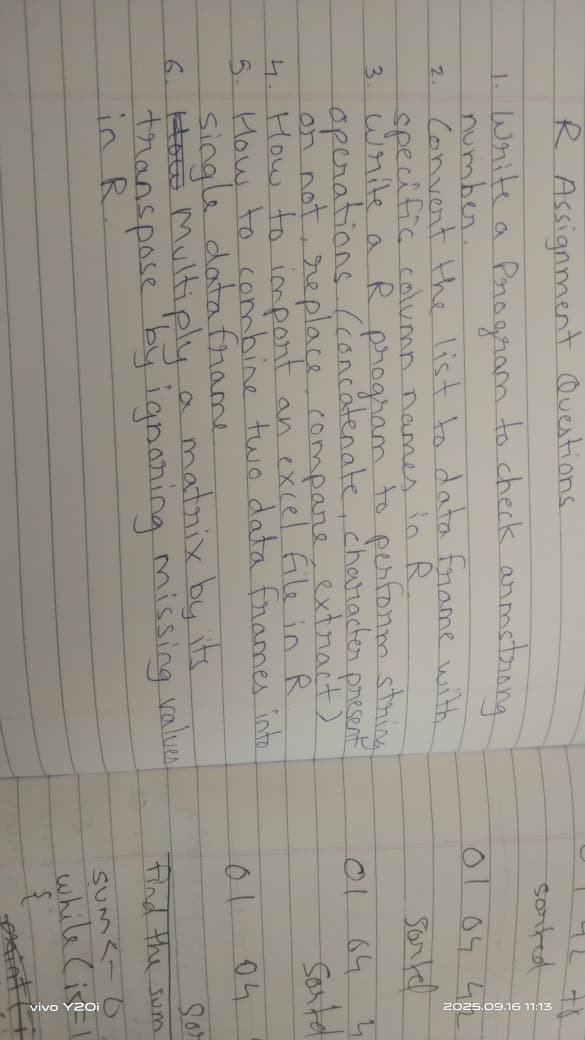 R Assignment Questions
1. Write a Program to check armstrong
number.
2. Convert the list to data frame with
specific column names in R.
3. Write a R program to perform string
operations (concatenate, character present
or not, replace, compare, extract)
4. How to import an excel file in R
5. How to combine two data frames into
single data frame
6. Multiply a matrix by its
transpose by ignoring missing values
in R.
42
sorted
01 04 42
sorted
01 04 4
Sorted
01 04
Sor
find the sum
sum <- 0
while (i
{
print(i
2025.09.16 11:13
vivo Y20i